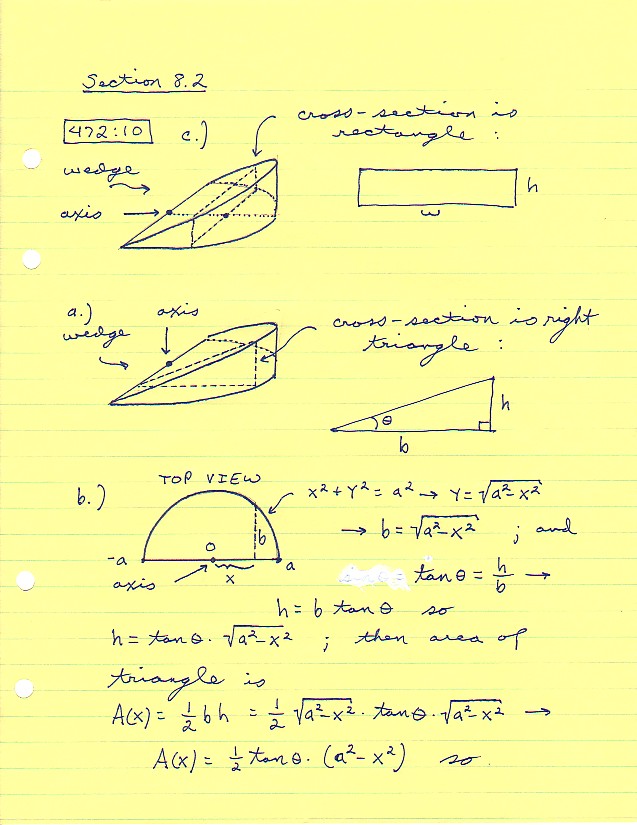 Section 8.2
472:10 c.)
cross-section is
rectangle :
wedge
axis
h
w
a.)
axis
wedge
cross-section is right
triangle :
h
θ
b
b.)
TOP VIEW
x² + y² = a² → y = √a²-x²
b
→ b = √a²-x² ; and
-a
0
a
x
axis
tan θ = h/b →
h = b tan θ so
h = tan θ · √a²-x² ; then area of
triangle is
A(x) = 1/2 b h = 1/2 √a²-x² · tan θ · √a²-x² →
A(x) = 1/2 tan θ · (a² - x²) so